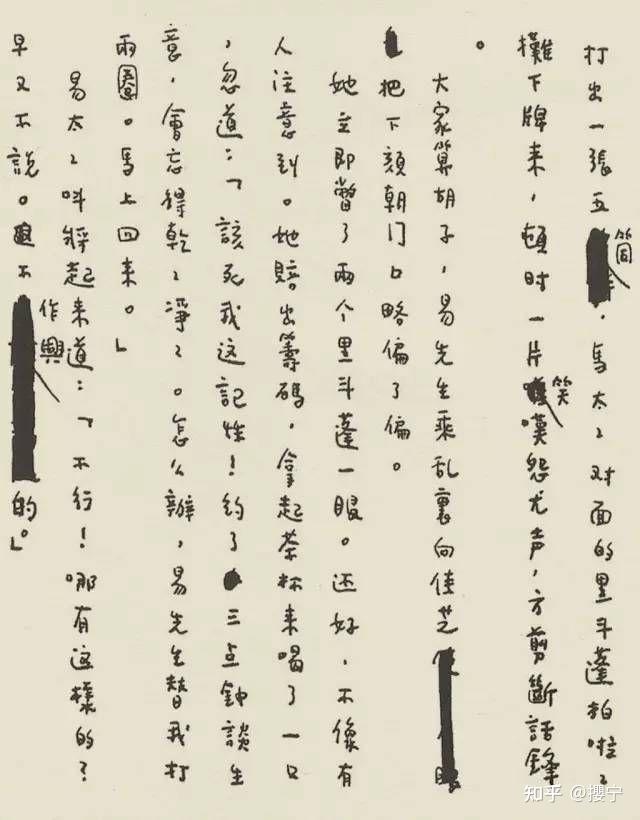 打出一張五筒，馬太〻对面的黑斗蓬拍啦〻
攤下牌来，頓时一片笑嘆怨尤声，方剪斷話鋒
。
大家算胡子，易先生乘乱裏向佳芝
把下頦朝门口略偏了偏。
她立即瞥了兩个黑斗蓬一眼。还好，不像有
人注意到。她賠出籌碼，拿起茶杯来喝了一口
，忽道：「該死我这記性！約了三点鐘談生
意，會忘得乾〻淨〻。怎么辦，易先生替我打
兩圈。馬上回来。」
易太〻呌將起来道：「不行！哪有这樣的？
早又不說。不作興的。」
知乎 @攖宁